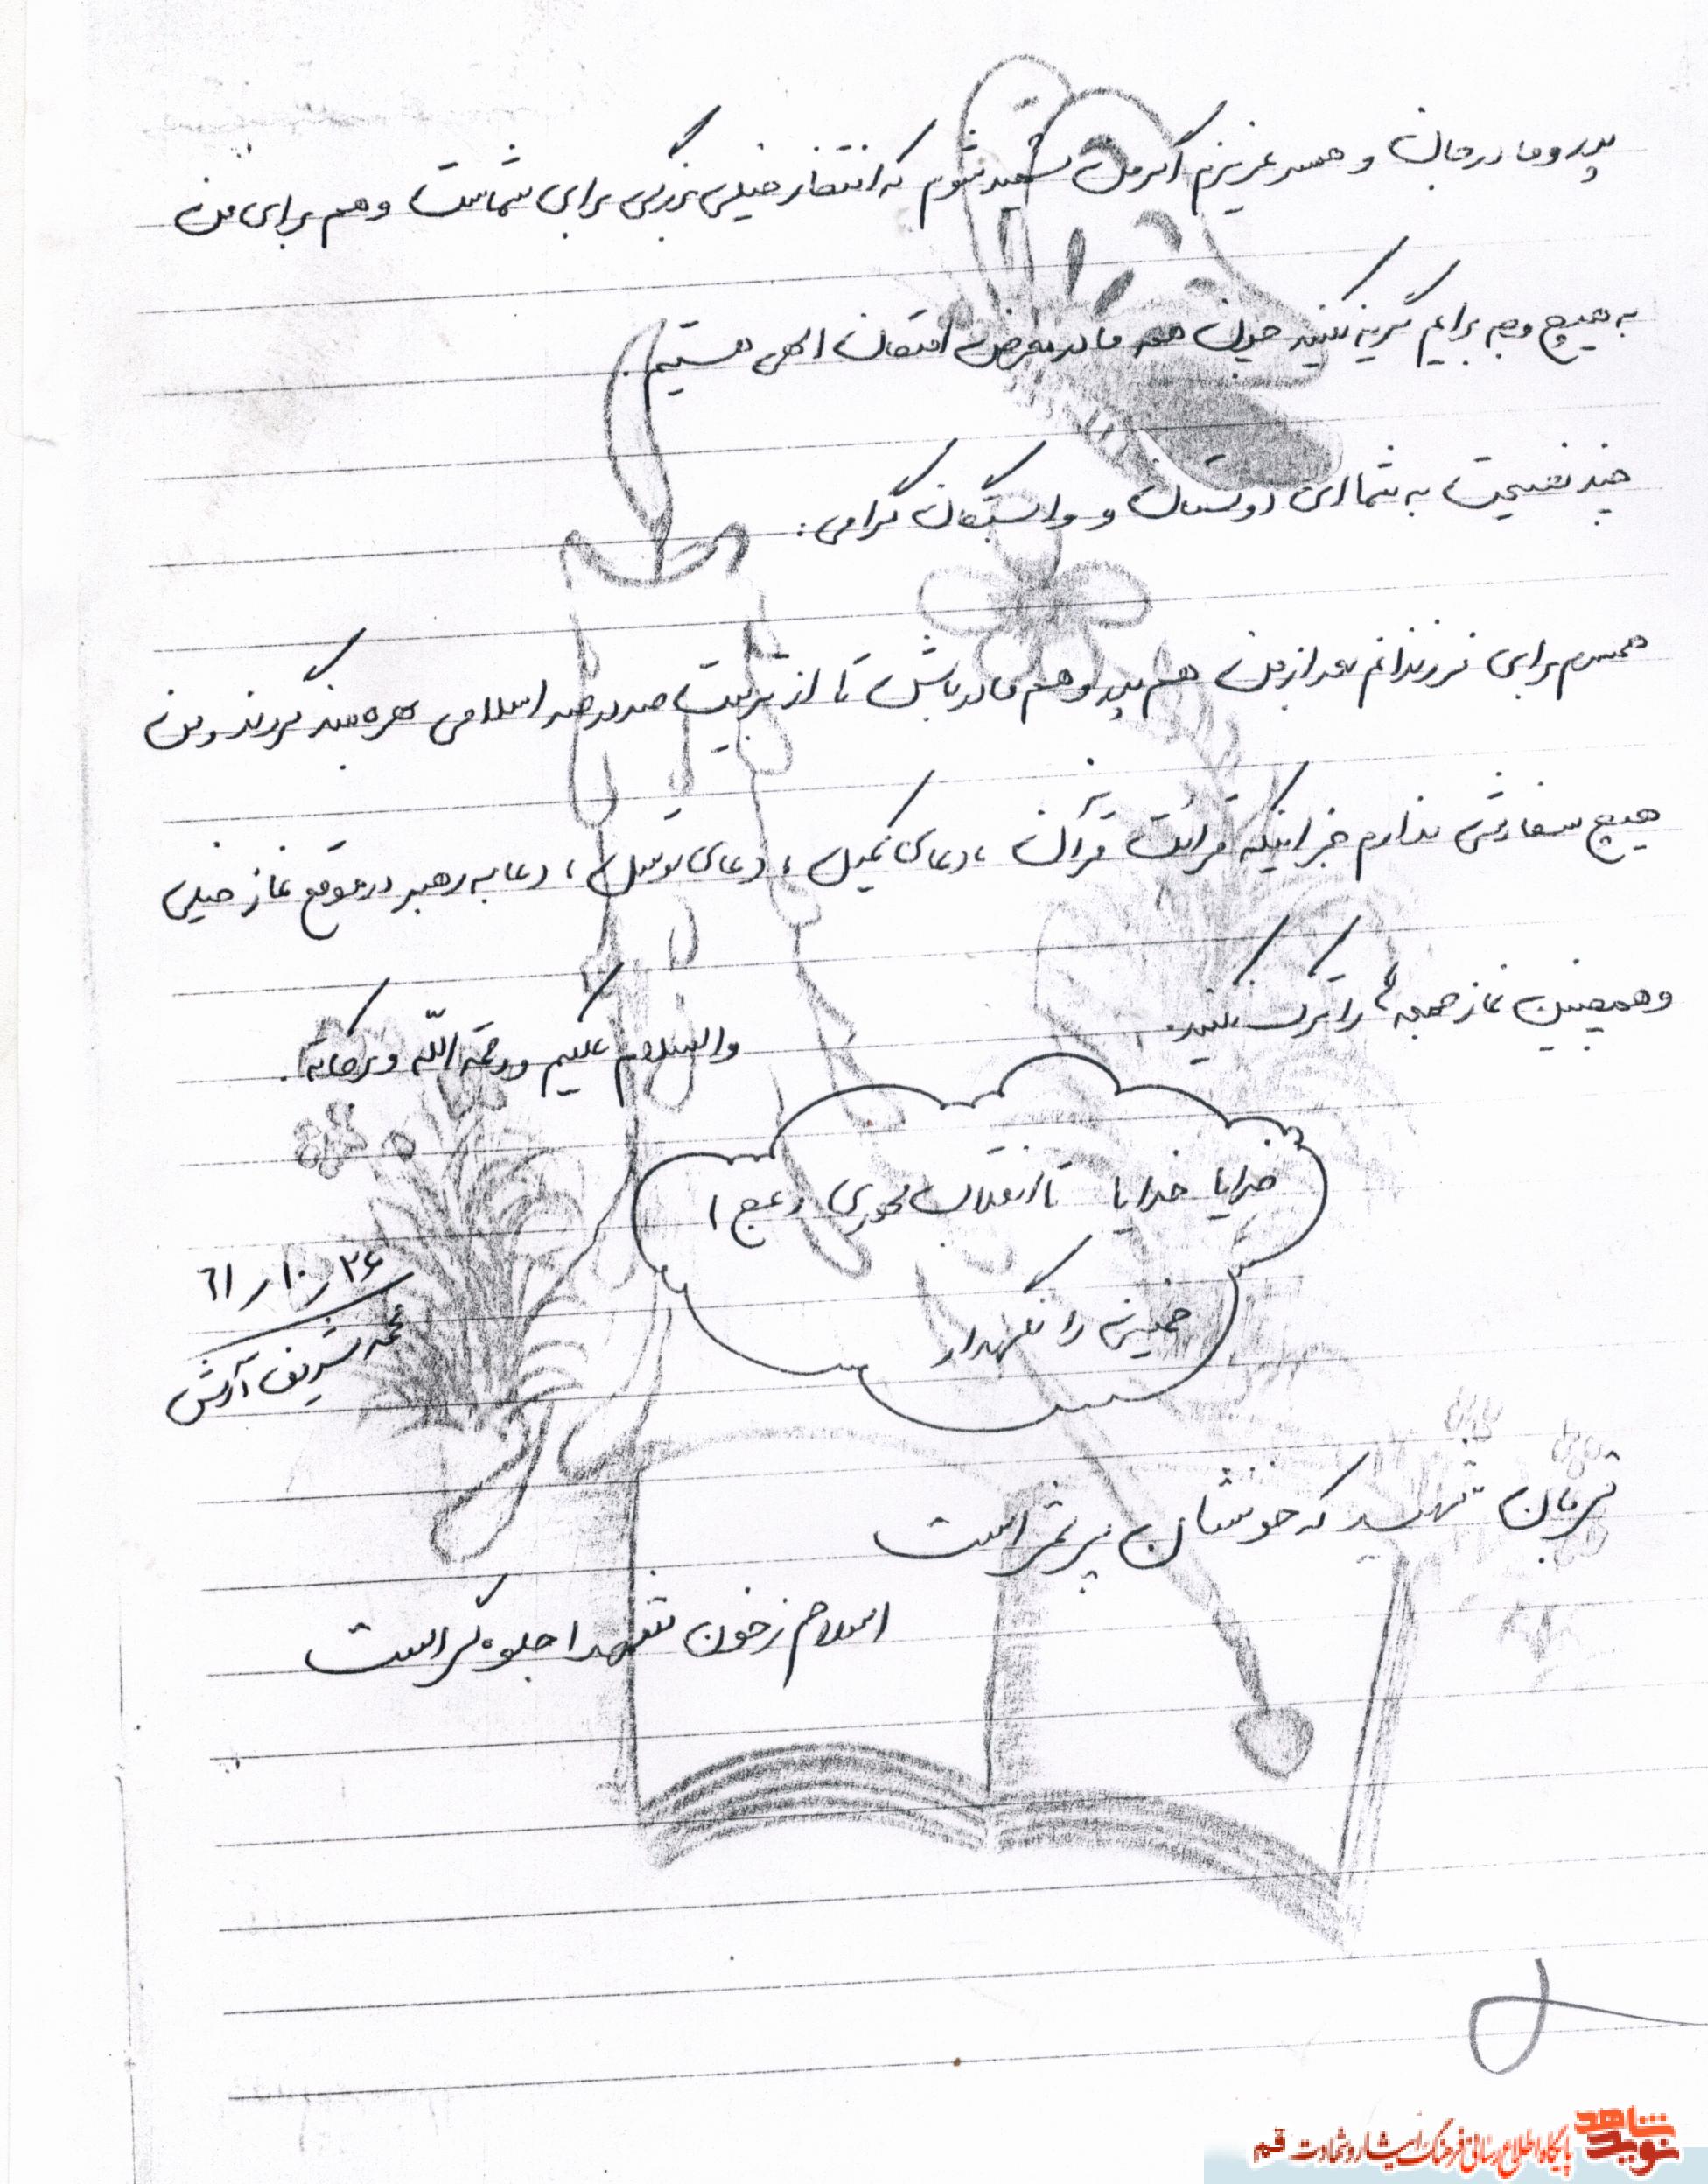 پدر و مادر جان و همسر عزیزم اگر من شهید شوم که انتظار خیلی بزرگی برای شماست و هم برای من
به هیچ وجه برایم گریه نکنید چون همه ما در معرض امتحان الهی هستیم.
چند نصیحت به شما ای دوستان و وابستگان گرامی:
همسرم برای فرزندانم بعد از من هم پدر و هم مادر باش تا از تربیت صددرصد اسلامی بهره‌مند گردند و من
هیچ سفارشی ندارم جز اینکه قرائت قرآن، دعای کمیل، دعای توسل، دعا به رهبر در موقع نماز خیلی
و همچنین نماز جمعه را ترک نکنید.
والسلام علیکم و رحمة اللّه و برکاته.
خدایا خدایا تا انقلاب مهدی (عج)
خمینی را نگهدار
۶۱/۱۰/۲۶
محمد شریف آرش
قربان شهید که خونشان پر ثمر است
اسلام ز خون شهدا جلوه‌گر است
نوید شاهد
پایگاه اطلاع رسانی فرهنگ ایثار و شهادت قم